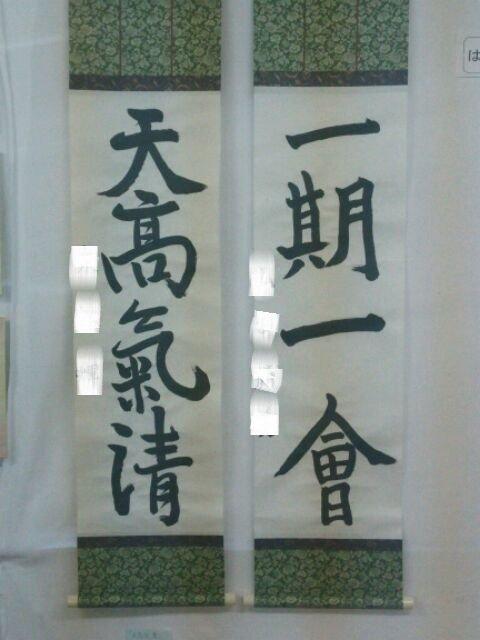 一期一會
天高氣清
は